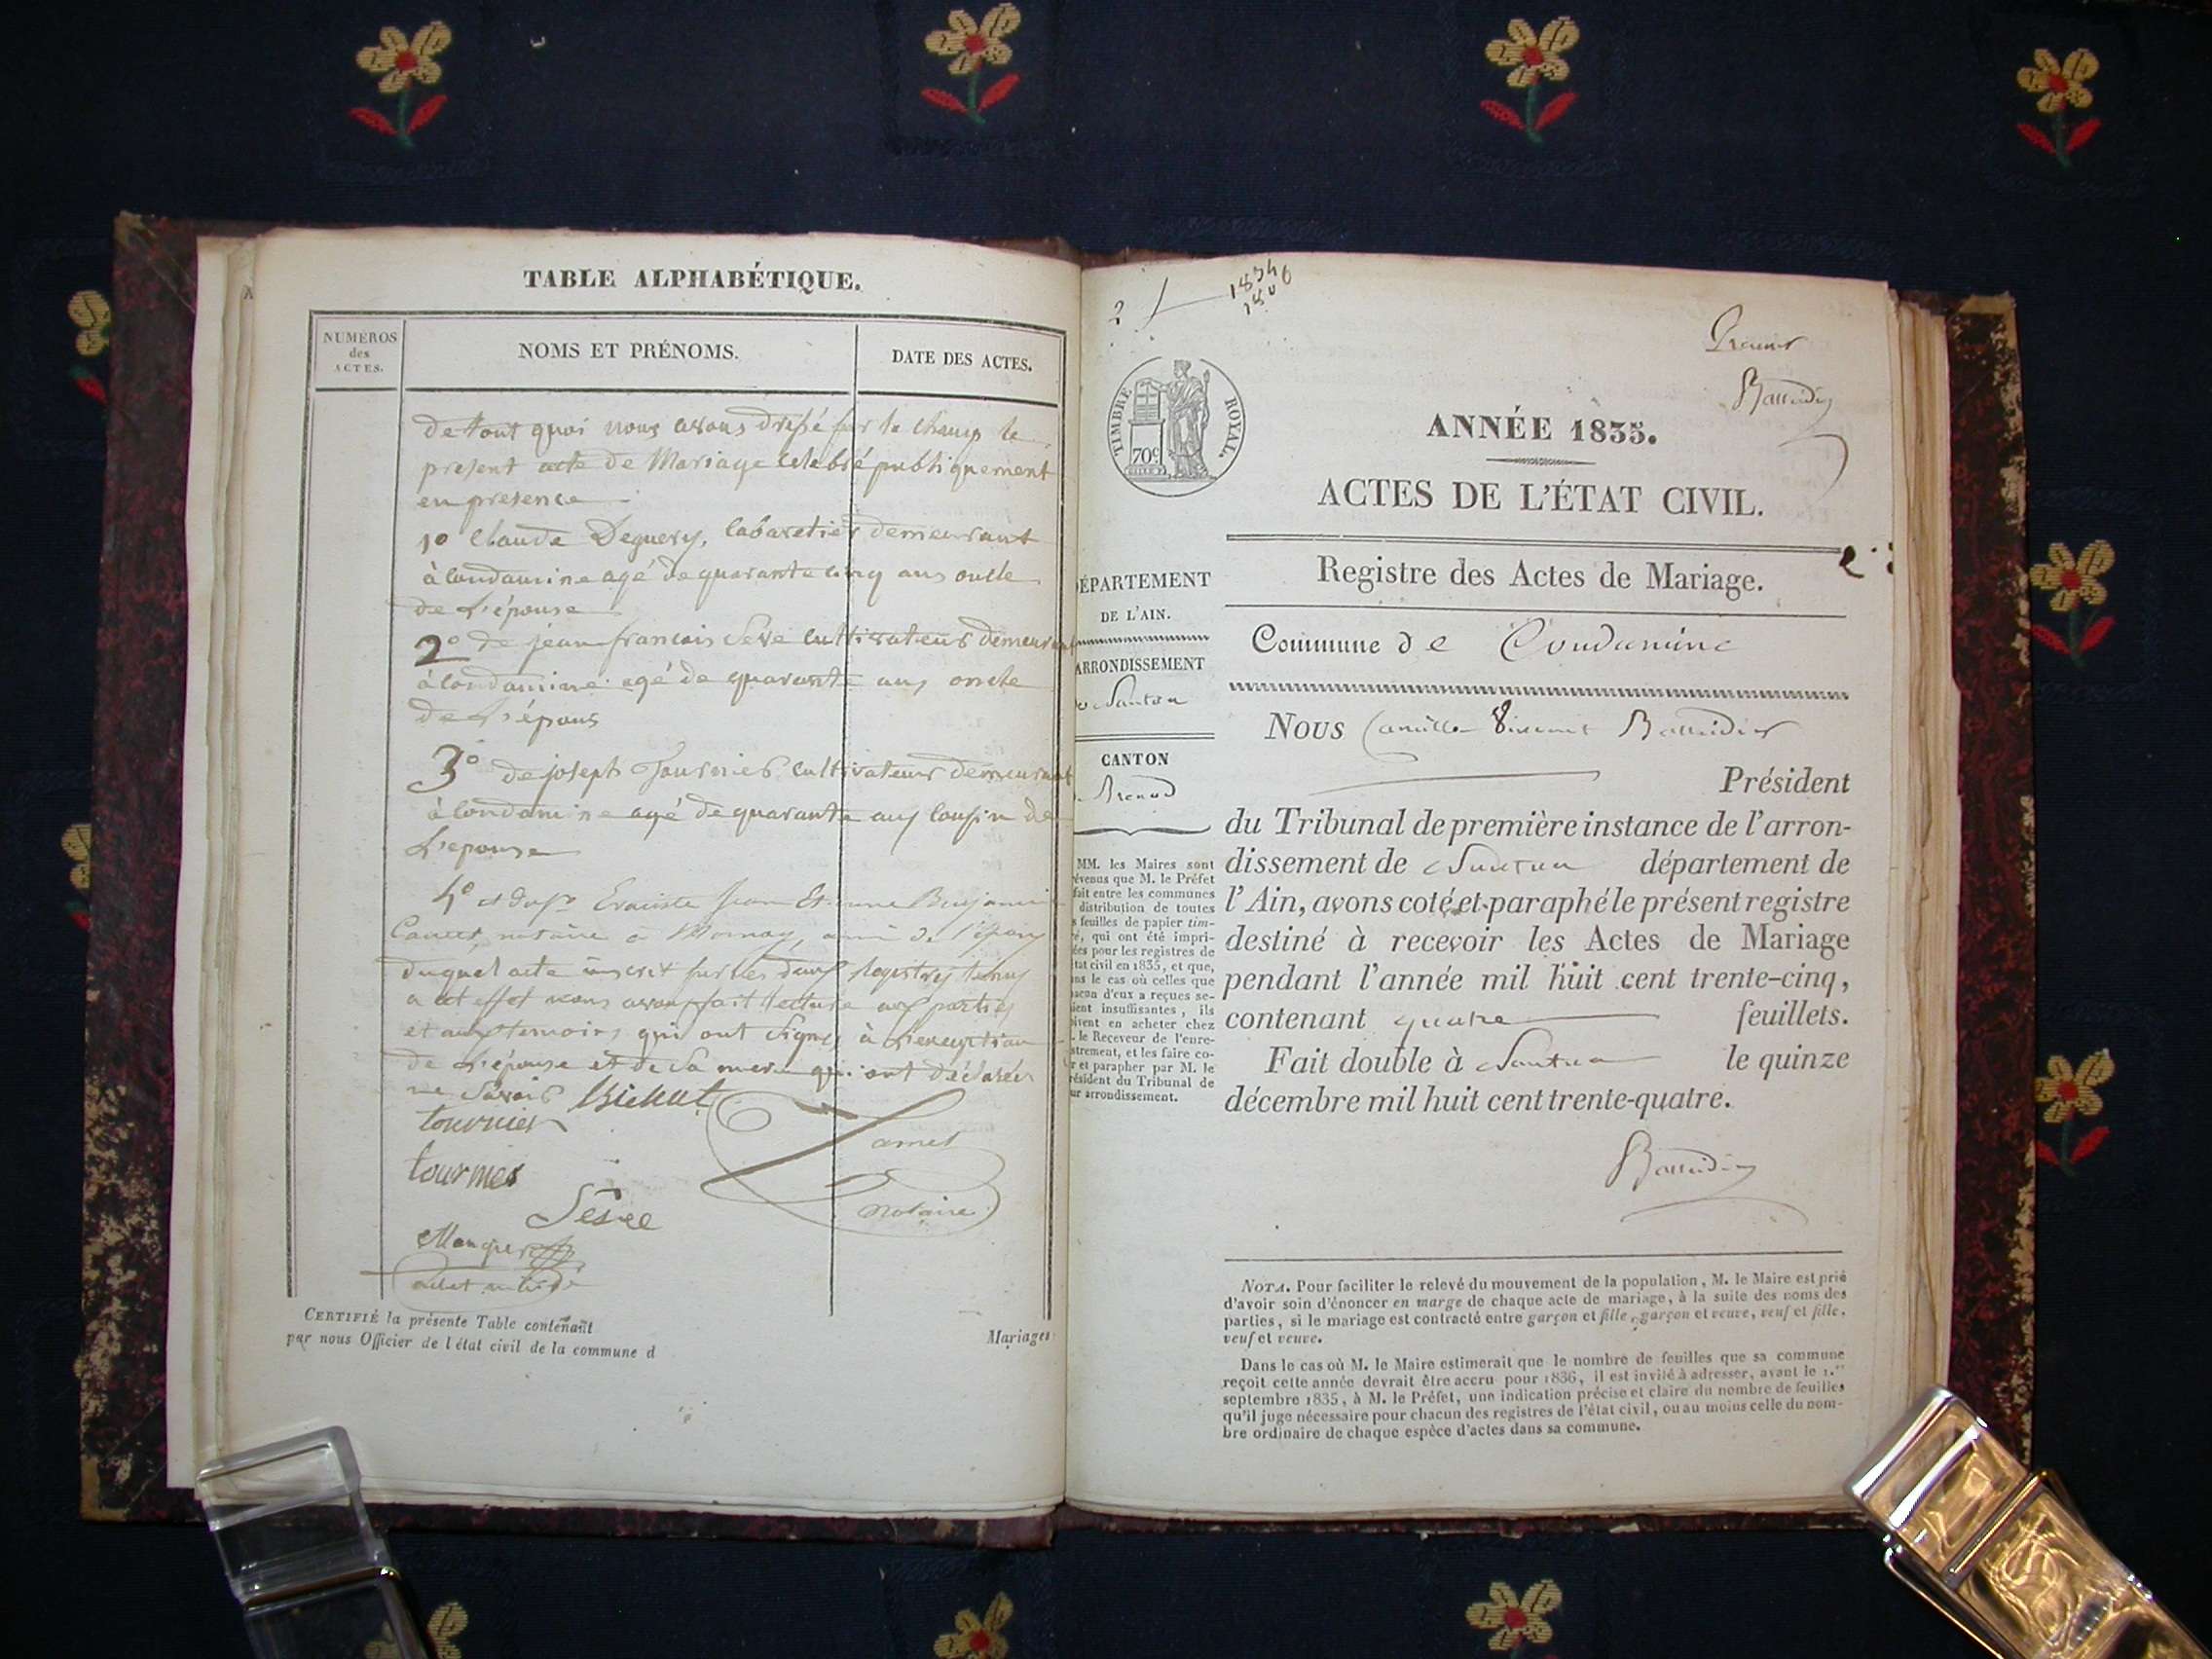 TABLE ALPHABÉTIQUE.
NUMÉROS
des
ACTES.
NOMS ET PRÉNOMS.
DATE DES ACTES.
de tout quoi nous avons dressé sur le champ le
present acte de Mariage celebré publiquement
en presence
1º Claude Deguery, Cabaretier demeurant
à Condamine agé de quarante cinq ans oncle
de L'épouse
2º de jean francois Seve cultivateur demeurant
à Condamine agé de quarante ans oncle
de L'épous
3º de joseph Tournier cultivateur demeurant
à Condamine agé de quarante ans cousin de
L'epouse
4º et du Sr Evariste Jean Benjamin
notaire à Mornay, ami de l'épous
duquel acte inscrit sur les deux registres tenus
a cet effet nous avons fait lecture aux parties
et aux temoins qui ont signé à L'exception
de L'épouse et de sa mere qui ont déclarées
ne savoir
Bichat
tournier
tournier
notaire
CERTIFIÉ la présente Table contenant
par nous Officier de l'état civil de la commune d
Mariages
2
1834
TIMBRE ROYAL.
70c
ANNÉE 1835.
ACTES DE L'ÉTAT CIVIL.
Registre des Actes de Mariage.
Commune de Condamine
ÉPARTEMENT
DE L'AIN.
ARRONDISSEMENT
Nantua
CANTON
Brenod
MM. les Maires sont
évenus que M. le Préfet
fait entre les communes
distribution de toutes
s feuilles de papier tim-
ré, qui ont été impri-
ées pour les registres de
tat civil en 1835, et que,
ns le cas où celles que
acun d'eux a reçues se-
ient insuffisantes, ils
ivent en acheter chez
. le Receveur de l'enre-
strement, et les faire co-
r et parapher par M. le
résident du Tribunal de
ur arrondissement.
Nous Camille Vincent
Président
du Tribunal de première instance de l'arron-
dissement de Nantua département de
l'Ain, avons coté et paraphé le présent registre
destiné à recevoir les Actes de Mariage
pendant l'année mil huit cent trente-cinq,
contenant quatre feuillets.
Fait double à Nantua le quinze
décembre mil huit cent trente-quatre.
NOTA. Pour faciliter le relevé du mouvement de la population, M. le Maire est prié
d'avoir soin d'énoncer en marge de chaque acte de mariage, à la suite des noms des
parties, si le mariage est contracté entre garçon et fille, garçon et veuve, veuf et fille,
veuf et veuve.
Dans le cas où M. le Maire estimerait que le nombre de feuilles que sa commune
reçoit cette année devrait être accru pour 1836, il est invité à adresser, avant le 1.er
septembre 1835, à M. le Préfet, une indication précise et claire du nombre de feuilles
qu'il juge nécessaire pour chacun des registres de l'état civil, ou au moins celle du nom-
bre ordinaire de chaque espèce d'actes dans sa commune.